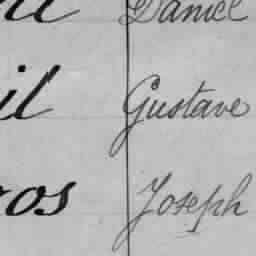 Daniel
il Gustave
ros Joseph